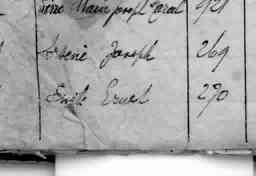 Marie Joseph 921
Arsène Joseph 269
Emile Ernest 270